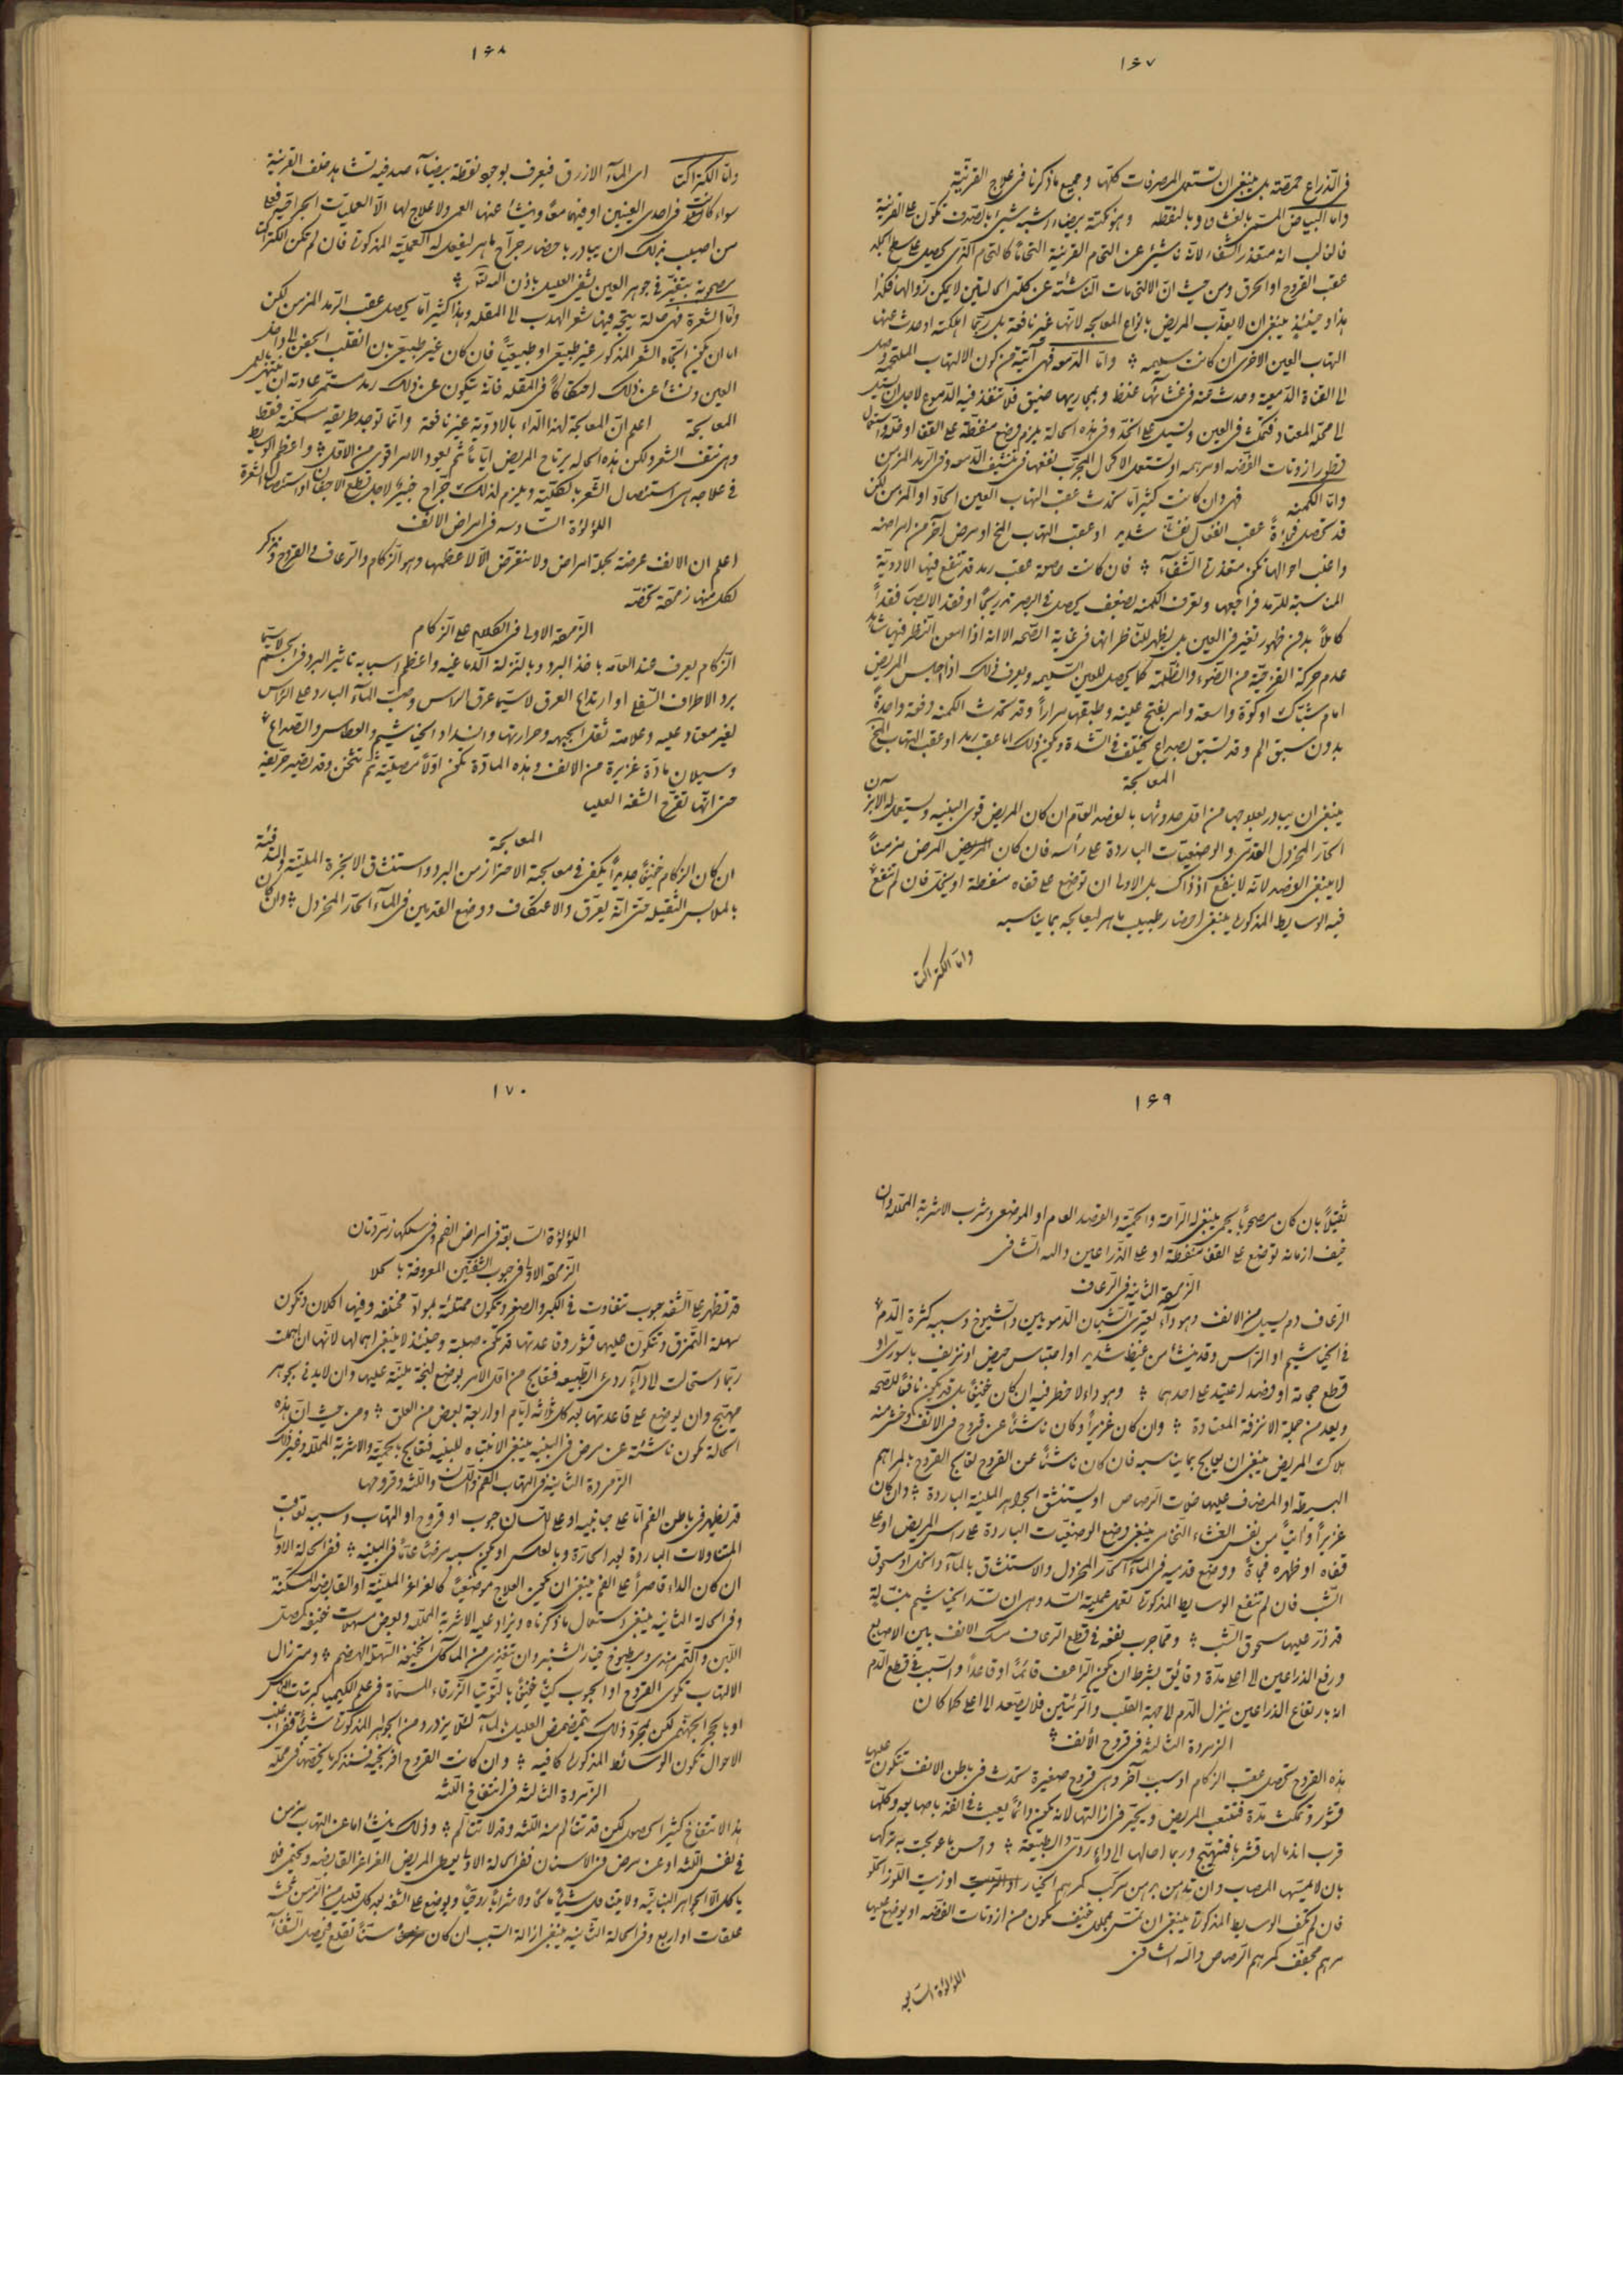 ١٦٧
فى الذراع حمصة بل ينبغى ان تستعمل المصرفات كلها وجميع ما ذكرنا فى علاج القرنية
واما البياض المسمى بالغشاوه وبالنقطه وهو نكتة بيضاء اشبه شيئ بالصدف تكون على القرنية
فالغالب انه متعذر الشفاء لانه ناشئ عن التحام القرنية التحاما كالتحام الذى يحصل على سطح الجلد
عقب القروح او الحرق ومن حيث ان الالتحامات الناشئة عن كلتى الحالتين لا يمكن زوالها فكذا
هذا وحينئذ ينبغى ان لا يعذب المريض بانواع المعالجه لانها غير نافعة بل ربما اهلكته او حدث عنها
التهاب العين الاخرى ان كانت سليمه واما الدمعه فهى آتية من كون الالتهاب الملتحمة وصل
الى القناة الدمعية وحدث منه فى غشائها غلظ وبمجاريها ضيق فلا تنفذ فيه الدموع لاجل ان تسيل
الى محله المعتاد فتمكث فى العين وتسيل على الخد وفى هذه الحالة يلزم وضع منفطة على القفا او خله واستعمال
قطور ازوتات الفضه او مرهمه او تستعمل الاكحال المجرب نفعها فى تنشيف الدمعه وفى الرمد المزمن
واما الكمنه فهى وان كانت كثيرا ما تحدث عقب التهاب العين الحاد او المزمن لكن
قد تحصل فجاءة عقب انفعال نفسانى شديد او عقب التهاب المخ او مرض آخر من امراضه
واغلب احوالها تكون متعذرة الشفاء فان كانت حاصلة عقب رمد قد تنفع فيها الادوية
المناسبة للرمد فراجعها وتعرف الكمنه بضعف يحصل فى البصر تدريجا او فقد الابصار فقدا
كاملا بدون ظهور تغير فى العين بل يظهر للناظر انها فى غاية الصحه الا انه اذا امعن النظر فيها شاهد
عدم حركة القزحية من الضوء والظلمة كما يحصل للعين السليمه ويعرف ذلك اذا جلس المريض
امام شباك او كوة واسعة وامر بفتح عينه وطبقها مرارا وقد تحدث الكمنه دفعة واحدة
بدون سبق الم وقد تسبق بصداع يختلف فى الشدة ويكون ذلك اما عقب رمد او عقب التهاب المخ
المعالجة
ينبغى ان يبادر بعلاجها من اول حدوثها بالفصد العام ان كان المريض قوى البنيه ويستعمل له الابزن
الحار المخردل القدمى والوضعيات الباردة على رأسه فان كان المرض مزمنا
لا ينبغى الفصد لانه لا ينفع اذ ذاك بل الاولى ان توضع على قفاه منفطة او يخل فان لم تنفع
فيه الوسايط المذكورة ينبغى احضار طبيب ماهر ليعالجه بما يناسبه
واما الكتراكتا
١٦٨
واما الكتراكتا اى المآء الازرق فيعرف بوجود نقطة بيضآء صدفيه تشاهد خلف القرنية
سواء كانت فى احدى العينين او فيهما معا وينشأ عنها العمى ولا علاج لها الا العمليات الجراحية فعلى
من اصيب بذلك ان يبادر باحضار جراح ماهر ليفعل له العملية المذكورة فان لم تكن الكتراكتا
مصحوبة بتغير فى جوهر العين شفى العليل باذن الله تعالى
واما الشعرة فهى حالة يتجه فيها شعر الهدب الى المقله وهذا كثيرا ما يحصل عقب الرمد المزمن لكن
اما ان يكون اتجاه الشعر المذكور غير طبيعى او طبيعيا فان كان غير طبيعى بان انقلب الجفن الى داخل
العين ونشأ عن ذلك احتكاكا فى المقله فانه يتكون عن ذلك رمد مستمر عادته ان ينتهى بالعمى
المعالجة اعلم ان المعالجة لهذا الداء بالادوية غير نافعة وانما توجد طريقه مسكنة فقط
وهى نتف الشعر ولكن بهذه الحاله يرتاح المريض اياما ثم يعود الامر اقوى من الاول واعظم الوسايط
فى علاجه هى استئصال الشعر بالكلية ويلزم لذلك جراح خبير لاجل قطع الاجفان او استئصال الشعرة
اللؤلؤة السادسه فى امراض الانف
اعلم ان الانف عرضة لجملة امراض ولا نتعرض الا لاعظمها وهو الزكام والرعاف والقروح ونذكر
لكل منها زمردة تخصه
الزمردة الاولى فى الكلام على الزكام
الزكام يعرف عند العامه باخذ البرد وبالنزلة الدماغيه واعظم اسبابه تاثير البرد فى الجسم لاسيما
برد الاطراف السفلى او ارتداع العرق لاسيما عرق الراس وصب المآء البارد على الراس
لغير معتاد عليه وعلامته ثقل الجبهه وحرارتها وانسداد الخياشيم والعطاس والصداع
وسيلان مادة غزيرة من الانف وهذه المادة تكون اولا مصلية ثم تثخن وقد تصير حريفة
حتى انها تقرح الشفة العليا
المعالجة
ان كان الزكام خفيفا جديدا يكفى فى معالجته الاحتراز من البرد واستنشاق الابخرة الملينة والتدفئة
بالملابس الثقيله حتى انه يعرق والاعتكاف ووضع القدمين فى المآء الحار المخردل وان كان
١٦٩
ثقيلا بان كان مصحوبا بحمى ينبغى له الراحة والحمية والفصد العام او الموضعى وشرب الاشربة المحلله وان
خيف ازمانه توضع على القفا منفطة او على الذراعين والله الشافى
الزمردة الثانية فى الرعاف
الرعاف دم يسيل من الانف وهو داء يعترى الشبان الدمويين والشيوخ وسببه كثرة الدم
فى الخياشيم او الراس وقد ينشأ من غيظ شديد او احتباس حيض او نزيف باسورى او
قطع حجامة او فصد اعتيد على احدهما وهو داء لا خطر فيه ان كان خفيفا بل قد يكون نافعا للصحه
ويعد من جملة الانزفة المعتادة وان كان غزيرا وكان ناشئا عن قروح فى الانف وخشى منه
هلاك المريض ينبغى ان يعالج بما يناسبه فان كان ناشئا عن القروح تعالج القروح بالمراهم
البسيطه او المضاف عليها خلات الرصاص او يستنشق الجواهر الملينة الباردة وان كان
غزيرا وآتيا من نفس الغشاء النخامى ينبغى وضع الوضعيات الباردة على راس المريض او على
قفاه او ظهره فجأة ووضع قدميه فى المآء الحار المخردل والاستنشاق بالمآء والخل او مسحوق
الشب فان لم تنفع الوسايط المذكورة تعمل عملية السد وهى ان تسد الخياشيم بفتيلة
قد ذر عليها مسحوق الشب ومما جرب نفعه فى قطع الرعاف مسك الانف بين الاصابع
ورفع الذراعين الى اعلى مدة دقائق بشرط ان يكون الراعف قائما او قاعدا والسبب فى قطع الدم
انه بارتفاع الذراعين ينزل الدم الى جهة القلب والرئتين فلا يصعد الى اعلى كما كان
الزمردة الثالثة فى قروح الانف
هذه القروح تحصل عقب الزكام او سبب آخر وهى قروح صغيرة تحدث فى باطن الانف تتكون عليها
قشور وتمكث مدة فتتعب المريض ويتحير فى ازالتها لانه يكون دائما يعبث فى انفه باصابعه وكلما
قرب اندمالها قشرها فتتهيج وربما احالها الى داء ردى الطبيعة واحسن ما عولجت به تركها
بان لا يلمسها المصاب وان تدهن بمرهم مركب كمرهم الخيار او زيت اللوز الحلو
فان لم تكف الوسايط المذكورة ينبغى ان تمس بمحلول خفيف يكون من ازوتات الفضه او يوضع عليها
مرهم مجفف كمرهم الرصاص والله الشافى
اللؤلؤة السابعه
١٧٠
اللؤلؤة السابعة فى امراض الفم وفى سلكها زمردتان
الزمردة الاولى فى حبوب الشفتين المعروفة
قد تظهر على الشفه حبوب تتفاوت فى الكبر والصغر وتكون ممتلئة بمواد مختلفه وفيها اكلان وتكون
سهلة التمزق وتتكون عليها قشور وقاعدتها قد تكون صلبة وحينئذ لا ينبغى اهمالها لانها ان اهملت
ربما استحالت الى داء ردى الطبيعه فتعالج من اول الامر بوضع لبخة ملينة عليها وان لا يدنى بجوهر
مهيج وان يوضع على قاعدتها بعد كل ثلاثه ايام او اربعة بعض من العلق ومن حيث ان هذه
الحالة تكون ناشئة عن مرض فى البنيه ينبغى الانتباه للبنيه فتعالج بالحمية والاشربة المحلله وغير ذلك
الزمردة الثانية فى التهاب الفم واللسان واللثه وقروحها
قد تظهر فى باطن الفم اما على جانبيه او على اللسان حبوب او قروح او التهاب وسببه تعاقب
المتناولات الباردة بعد الحارة وبالعكس او يكون سببه مرضا عاما فى البنيه ففى الحالة الاولى
ان كان الداء قاصرا على الفم ينبغى ان يكون العلاج موضعيا كالغراغر الملينة او القابضه المسكنة
وفى الحالة الثانيه ينبغى استعمال ما ذكرناه ويزاد عليه الاشربة المحلله وبعض مسهلات خفيفه كمصل
اللبن والتمر هندى ومطبوخ خيار الشنبر وان يتغذى من المآكل الخفيفة السهلة الهضم ومتى زال
الالتهاب تكوى القروح او الحبوب كيا خفيفا بالتوتيا الزرقاء المسماة فى علم الكيميا كبريتات النحاس
او بالحجر الجهنمى لكن بمجرد ذلك يتمضمض العليل بالمآء لئلا يزدرد من الجواهر المذكورة شيئا ففى اغلب
الاحوال تكون الوسائط المذكورة كافيه وان كانت القروح افرنجيه فسنذكر ما يخصها فى محله
الزمردة الثالثة فى انتفاخ اللثه
هذا الانتفاخ كثير الحصول لكن قد تتالم منه اللثه وقد لا تتالم وذلك ينشأ اما عن التهاب مزمن
فى نفس اللثه او عن مرض فى الاسنان ففى الحالة الاولى يعطى المريض الغراغر القابضه ويحتمى فلا
ياكل الا الجواهر النباتيه ولا يتناول شيئا مالحا ولا شرابا روحيا ويوضع على الشفه بعد كل قليل من الزمن ثلث
علقات او اربع وفى الحالة الثانيه ينبغى ازالة السبب ان كان سنا تقلع فيحصل الشفآء